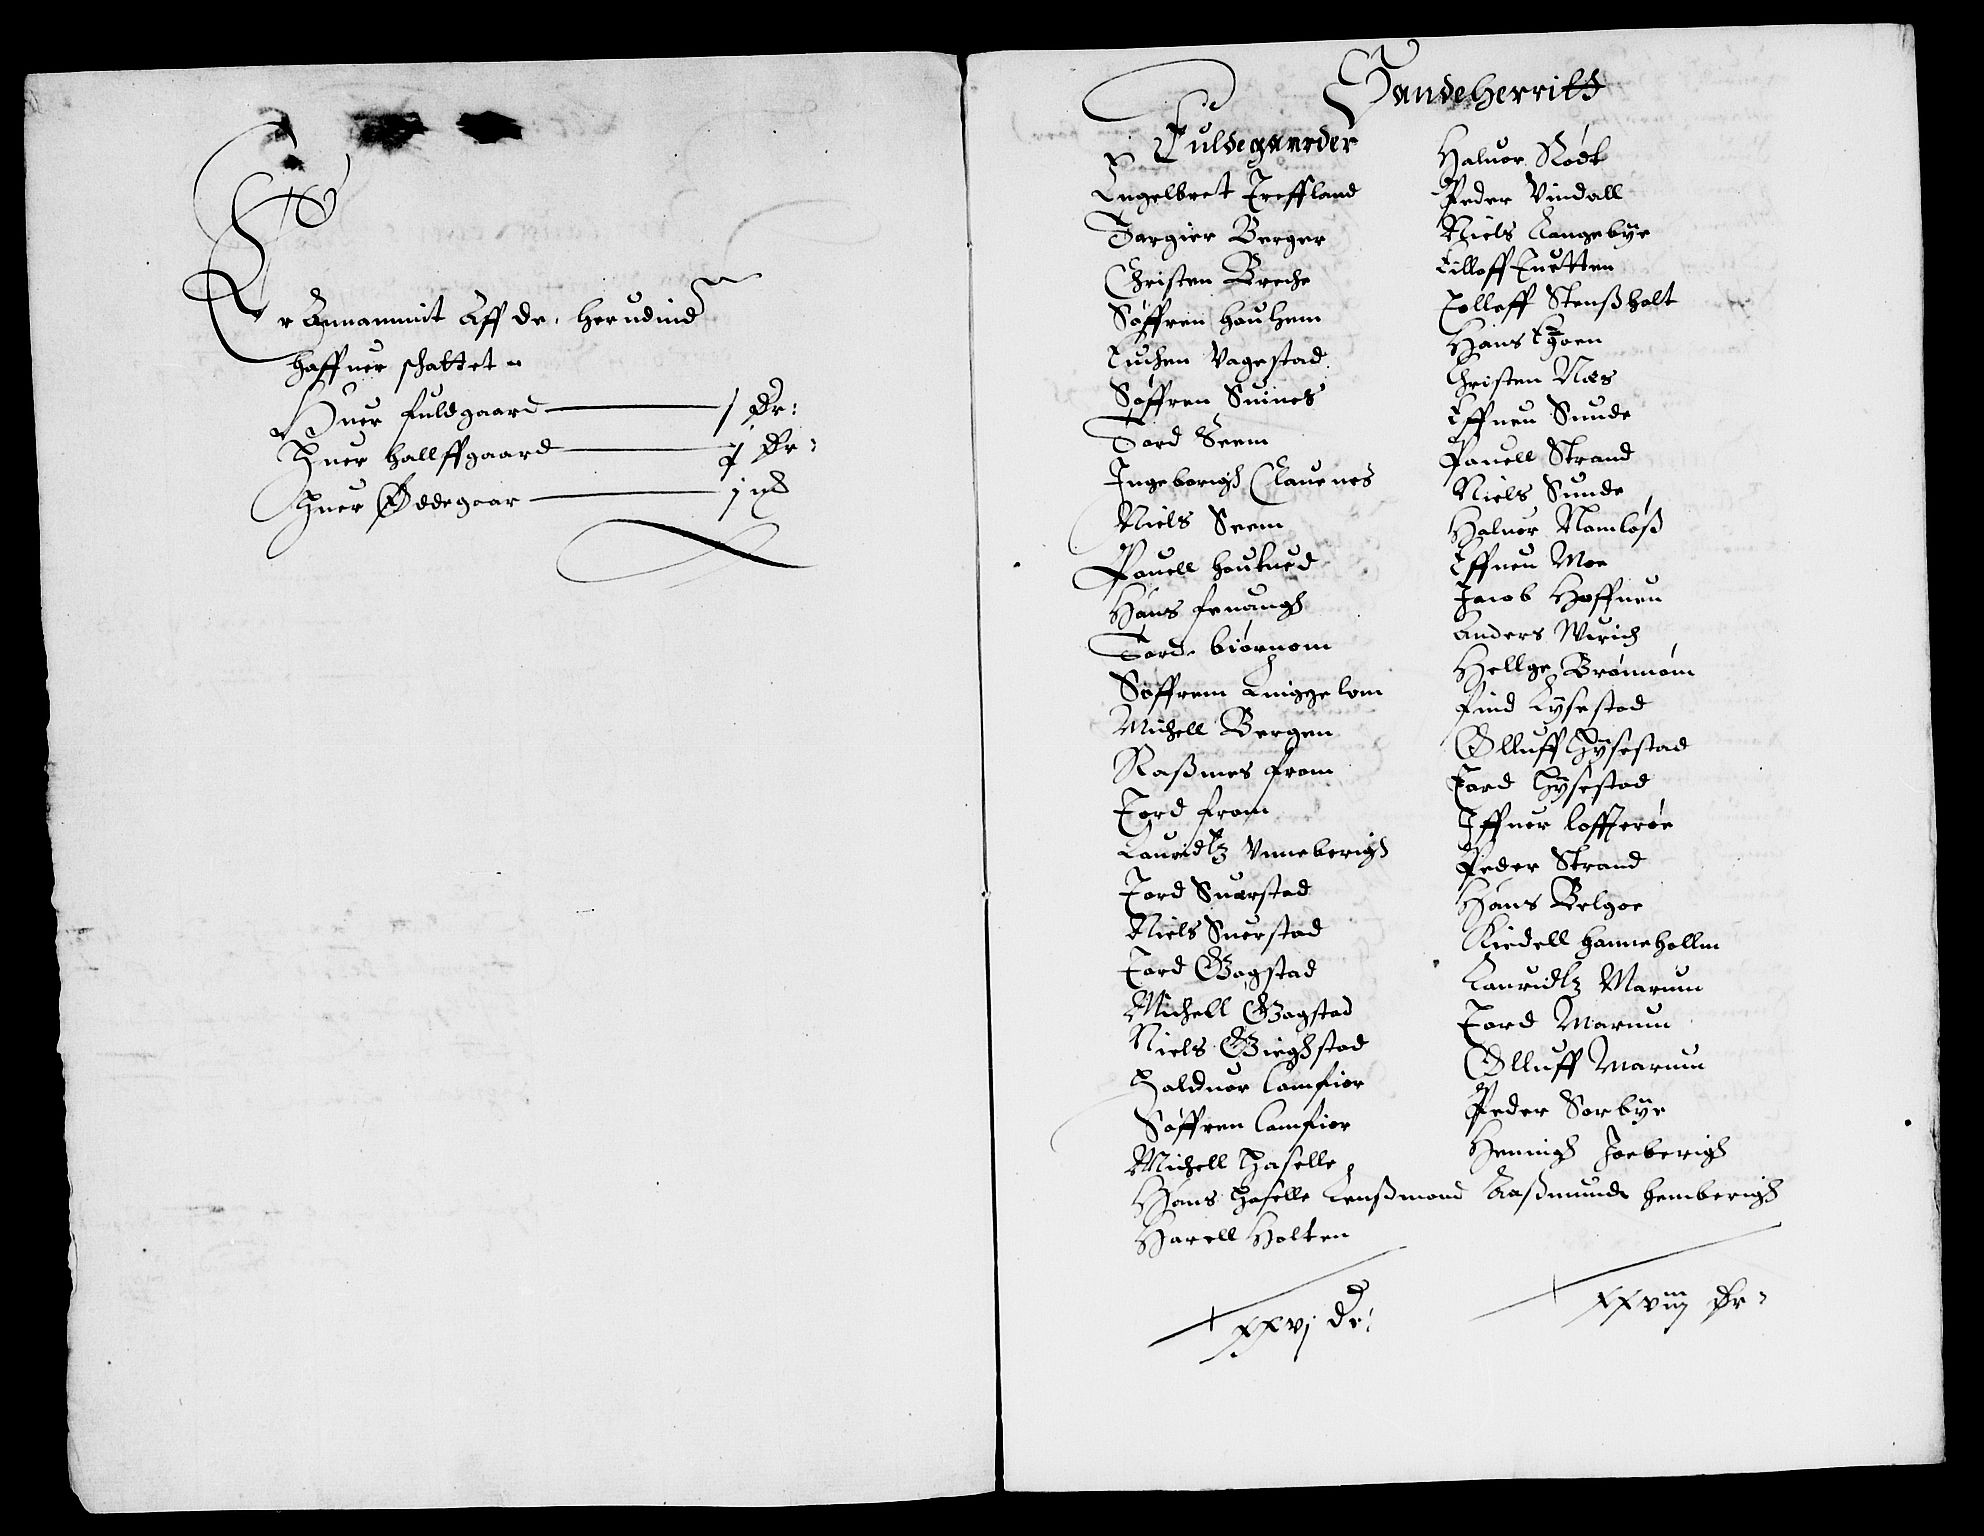 Er Annammit Aff de, her udind
haffuer schattet
Huer fuldgaard — j Dr:
Huer hallffgaard — Dr:
Huer Ødegaar — j
Sandeherritt
Fuldegaarder
Engelbret Treffland
Torgier Berger
Christen Breche
Søffren hauhem
Tuchen Vagestad
Søffren Suines
Tord Seem
Ingeborigh Clauenes
Niels Seem
Pouell houkued
Hans frenangh
Tord biørnom
Søffrem Knigge lom
Michell Bergen
Raßmes from
Tord from
Lauridtz Vnneberigh
Tord Suerstad
Niels Suerstad
Tord Gogstad
Michell Gogstad
Niels Gieghstad
Halduor Camfior
Søffren Camfior
Michell Haselle
Hans Haselle Lenßmand
Harell Holten
xxvj Dr:
Haluor Rødt
Peder Vindall
Niels Langebye
Tilloff Tuetten
Tolleff Stenßholt
Hans
Christen Næs
Effuen Sunde
Pouell Strand
Niels Sunde
Haluor Namløß
Effuen Moe
Jacob Hoffuen
Anders Wirich
Hellge Brønnom
Find Lysestad
Olluff Hysestad
Tord Hysestad
Iffuer lofftzrøe
Peder Strand
Hans Belgoe
Kiedell hannehollm
Lauridtz Marum
Tord Marum
Olluff Marum
Peder Sorbye
Hennigh Joeberigh
Aaßmund hemberigh
xxviij Dr: